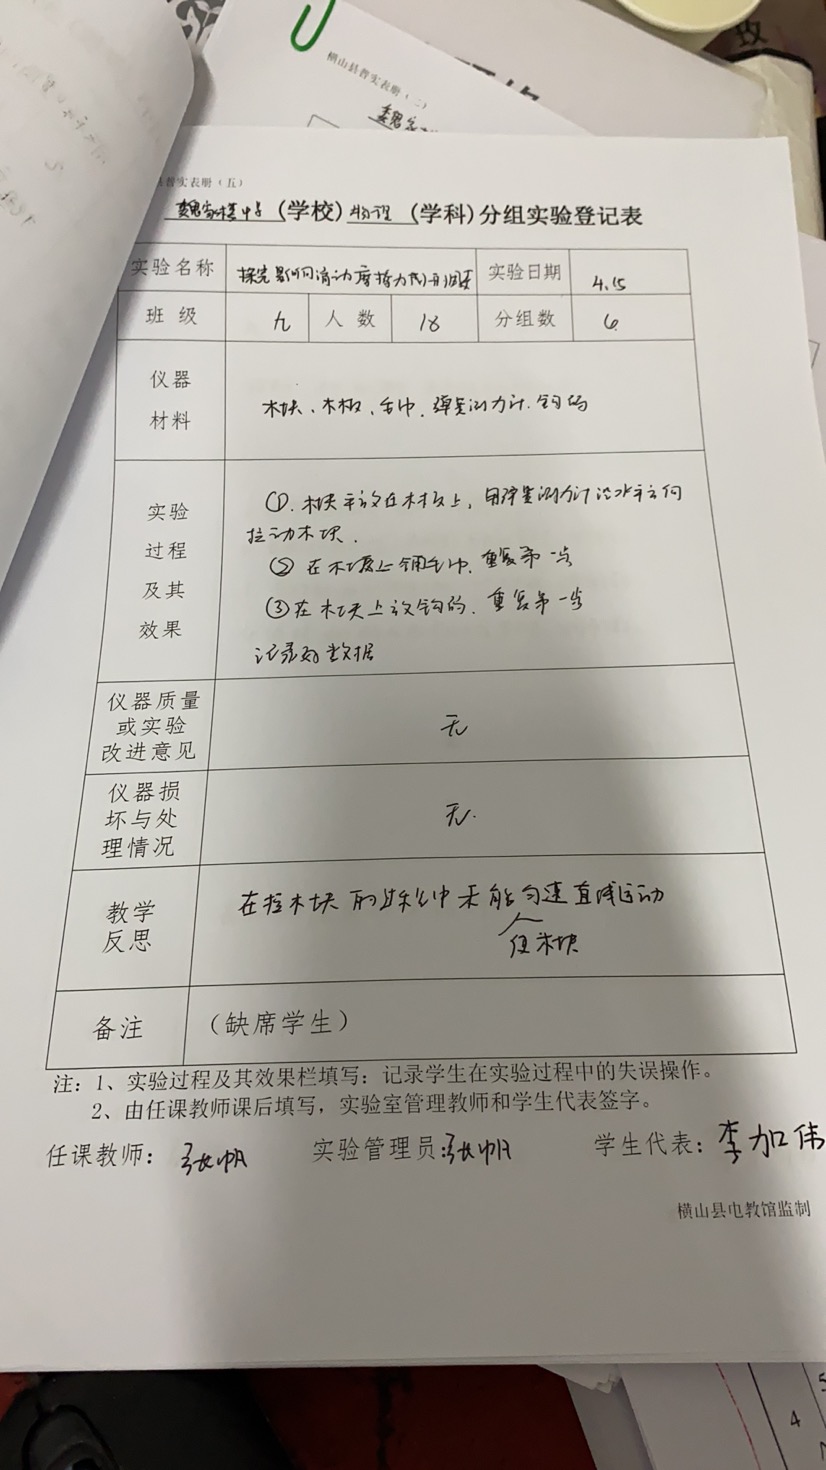 横山县普实表册（二）
魏家
普实表册（五）
魏家楼中学（学校）物理（学科）分组实验登记表
实验名称 探究影响滑动摩擦力的因素 实验日期 4.15
班 级 九 人 数 18 分组数 6
仪器
材料
木块、木板、毛巾、弹簧测力计、钩码
实验
过程
及其
效果
①、木块平放在木板上，用弹簧测力计沿水平方向
拉动木块.
②在木板上铺毛巾，重复第一步
③在木块上放钩码，重复第一步
记录好数据
仪器质量
或实验
改进意见
无
仪器损
坏与处
理情况
无.
教学
反思
在拉木块的过程中未能匀速直线运动
使木块
备注 （缺席学生）
注：1、实验过程及其效果栏填写：记录学生在实验过程中的失误操作。
2、由任课教师课后填写，实验室管理教师和学生代表签字。
任课教师：张帆 实验管理员：张帆 学生代表：李加伟
横山县电教馆监制
4